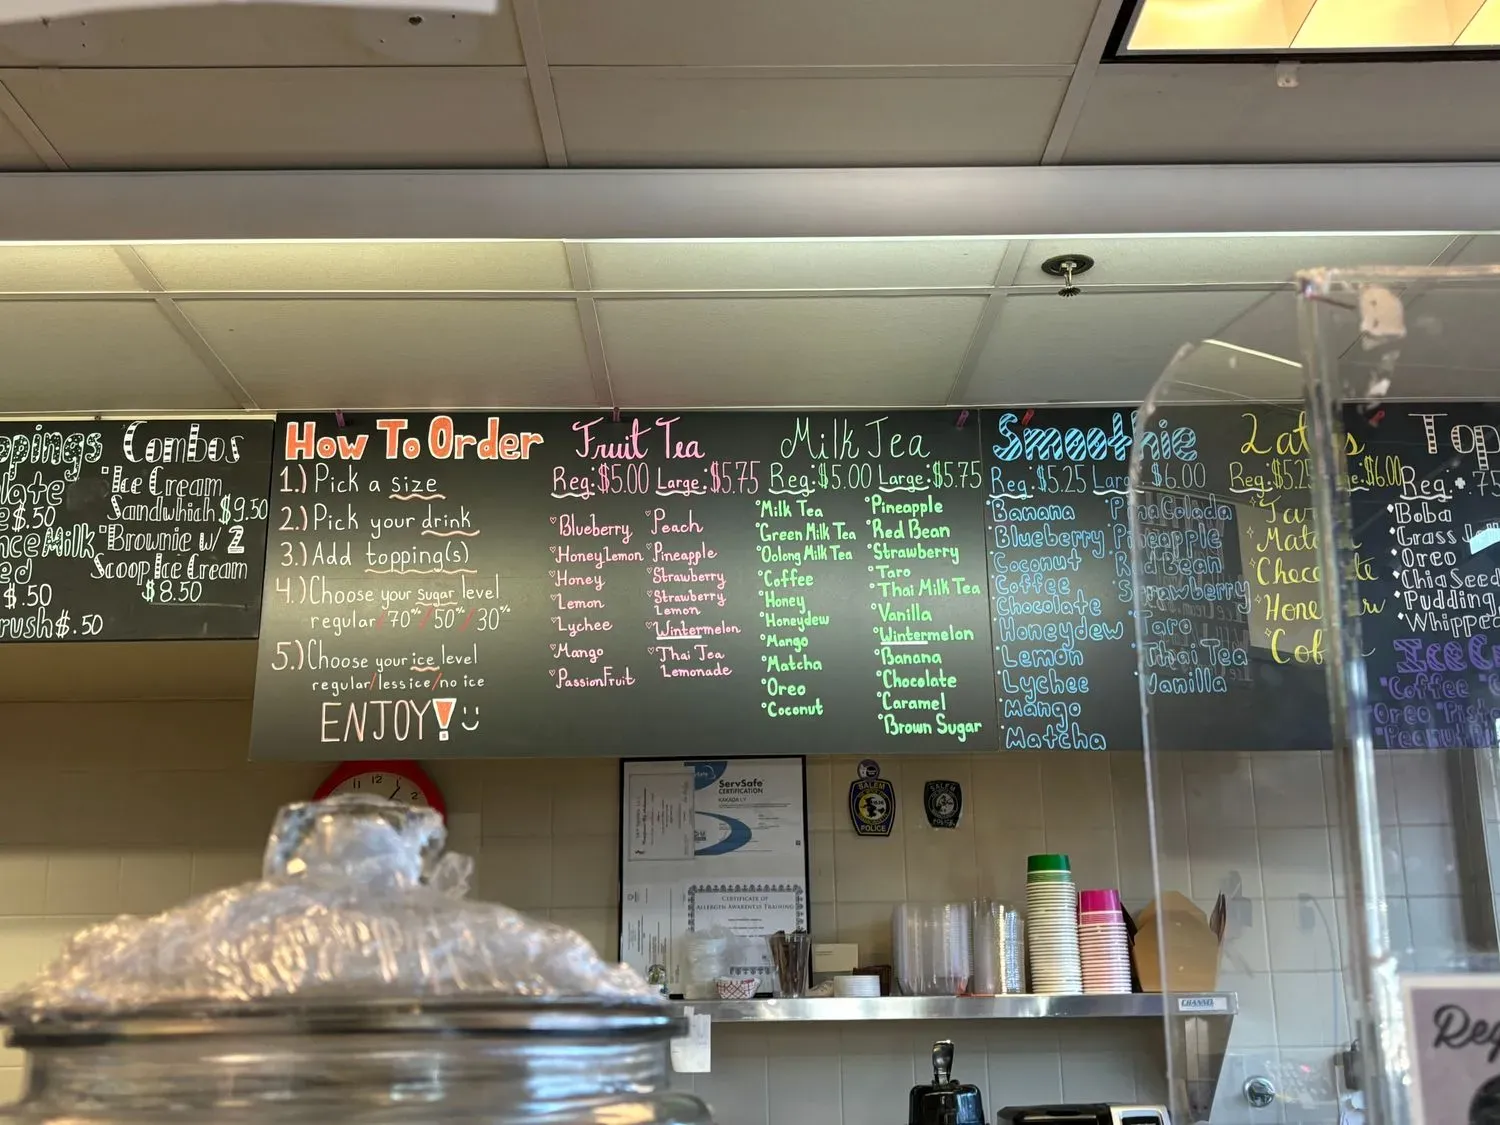 Combos
Ice Cream
Sandwhich $9.50
Brownie w/ 2
Scoop Ice Cream
$8.50
$.50
Milk
$.50
$.50
How To Order
1.) Pick a size
2.) Pick your drink
3.) Add topping(s)
4.) Choose your sugar level
regular/70%/50%/30%
5.) Choose your ice level
regular/less ice/no ice
ENJOY!
Fruit Tea
Reg: $5.00 Large: $5.75
Blueberry
Honey Lemon
Honey
Lemon
Lychee
Mango
PassionFruit
Peach
Pineapple
Strawberry
Strawberry
Lemon
Wintermelon
Thai Tea
Lemonade
Milk Tea
Reg: $5.00 Large: $5.75
Milk Tea
Green Milk Tea
Oolong Milk Tea
Coffee
Honey
Honeydew
Mango
Matcha
Oreo
Coconut
Pineapple
Red Bean
Strawberry
Taro
Thai Milk Tea
Vanilla
Wintermelon
Banana
Chocolate
Caramel
Brown Sugar
Smoothie
Reg: $5.25 Large: $6.00
Banana
Blueberry
Coconut
Coffee
Chocolate
Honeydew
Lemon
Lychee
Mango
Matcha
PinaColada
Pineapple
Red Bean
Strawberry
Taro
Thai Tea
Vanilla
Reg: $5.25 $6.00
Reg.
Boba
Grass
Oreo
Chia Seed
Pudding
Whipped
Coffee
Oreo
ServSafe
CERTIFICATION
CERTIFICATE OF
ALLERGEN AWARENESS TRAINING
SALEM
POLICE
SALEM
POLICE
11 12 1 2
CHANNEL